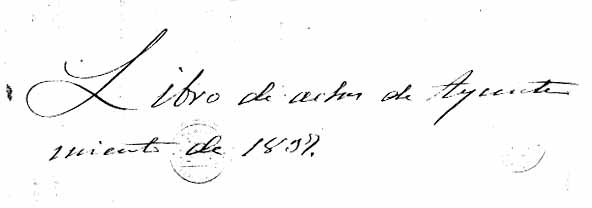 Libro de actas de Ayunta
miento de 1837.